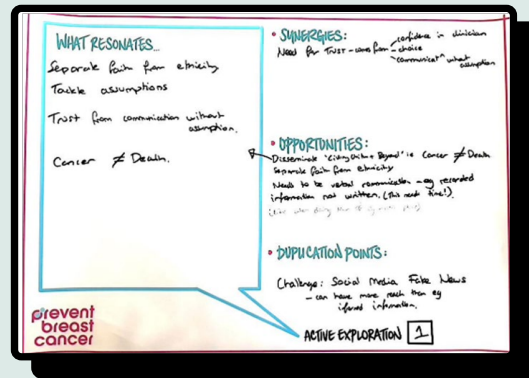 WHAT RESONATES...
Separate faith from ethnicity
Tackle assumptions
Trust from communication without
assumption.
Cancer ≠ Death.
• SYNERGIES:
Need for Trust - comes from - confidence in clinician
- choice
"communicat" what
assumption
• OPPORTUNITIES:
Disseminate 'Living With + Beyond' ie Cancer ≠ Death
Separate faith from ethnicity
Needs to be verbal communication - eg recorded
information not written. (This needs time!).
• DUPLICATION POINTS:
Challenge: Social Media Fake News
- can have more reach than eg
informed information.
prevent
breast
cancer
ACTIVE EXPLORATION 1